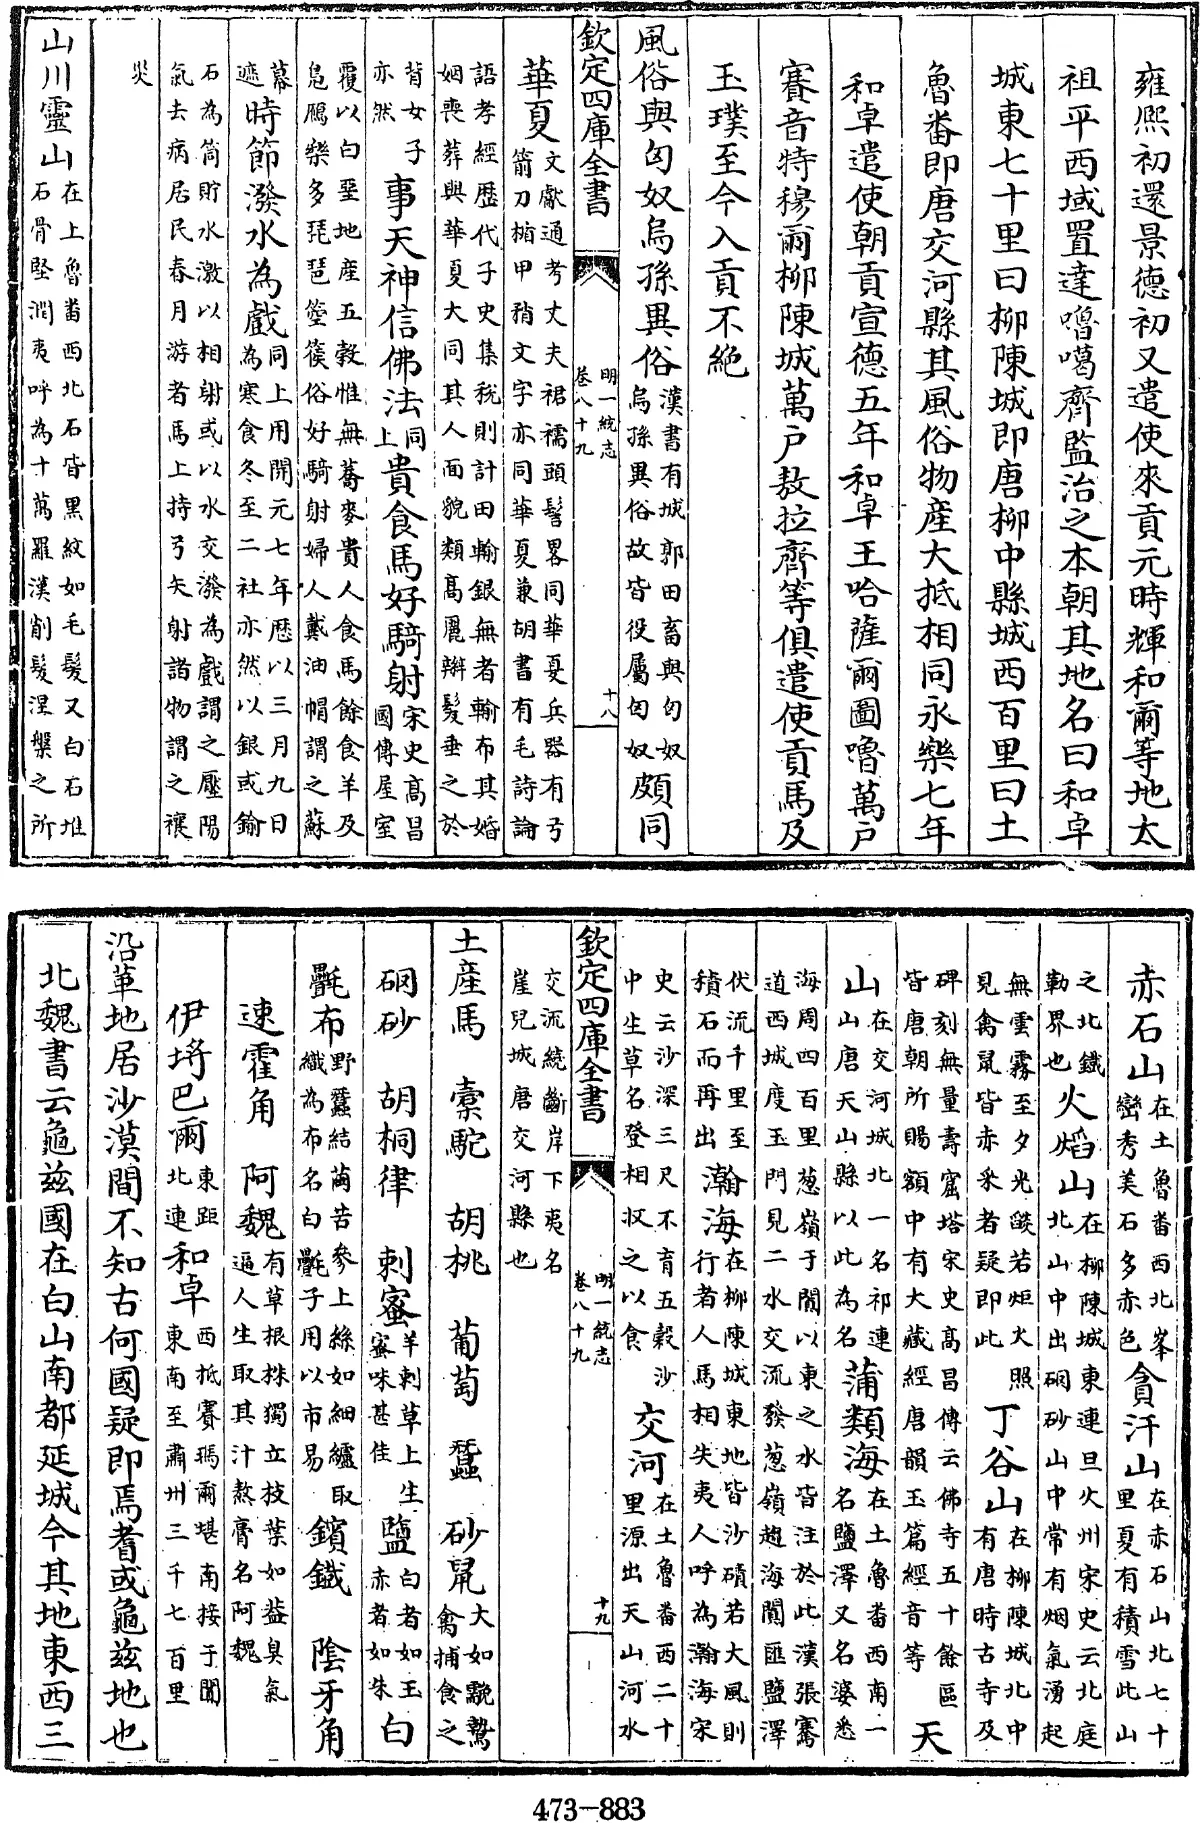 雍熙初還景德初又遣使來貢元時輝和爾等地太
祖平西域置達嚕噶齊監治之本朝其地名曰和卓
城東七十里曰柳陳城即唐柳中縣城西百里曰土
魯番即唐交河縣其風俗物産大抵相同永樂七年
和卓遣使朝貢宣德五年和卓王哈薩爾圖嚕萬戸
賽音特穆爾柳陳城萬戸敖拉齊等俱遣使貢馬及
玉璞至今入貢不絶
風俗與匈奴烏孫異俗漢書有城郭田畜與匈奴烏孫異俗故皆役屬匈奴頗同
欽定四庫全書 明一統志 卷八十九 十八
華夏文獻通考丈夫裙襦頭髻畧同華夏兵器有弓箭刀楯甲矟文字亦同華夏兼胡書有毛詩論
語孝經歴代子史集税則計田輸銀無者輸布其婚姻喪葬與華夏大同其人面貌類高麗辮髮垂之於
背女子亦然事天神信佛法同上貴食馬好騎射宋史高昌國傳屋室
覆以白堊地産五穀惟無蕎麥貴人食馬餘食羊及鳧鴈樂多琵琶箜篌俗好騎射婦人戴油帽謂之蘇
幕遮時節潑水為戲同上用開元七年歴以三月九日為寒食冬至二社亦然以銀或鍮
石為筒貯水激以相射或以水交潑為戲謂之壓陽氣去病居民春月游者馬上持弓矢射諸物謂之禳
災
山川靈山在上魯番西北石皆黒紋如毛髮又白石堆石骨堅潤夷呼為十萬羅漢削髮涅槃之所
赤石山在土魯番西北峯巒秀美石多赤色貪汗山在赤石山北七十里夏有積雪此山
之北鐵勒界也火焰山在柳陳城東連旦火州宋史云北庭北山中出硇砂山中常有烟氣湧起
無雲霧至夕光燄若炬火照見禽鼠皆赤采者疑即此丁谷山在柳陳城北中有唐時古寺及
碑刻無量壽窟塔宋史高昌傳云佛寺五十餘區皆唐朝所賜額中有大藏經唐韻玉篇經音等天
山在交河城北一名祁連山唐天山縣以此為名蒲類海在土魯番西南一名鹽澤又名婆悉
海周四百里葱嶺于闐以東之水皆注於此漢張騫道西域度玉門見二水交流發葱嶺趨海闐匯鹽澤
伏流千里至積石而再出瀚海在柳陳城東地皆沙磧若大風則行者人馬相失夷人呼為瀚海宋
史云沙深三尺不育五穀沙中生草名登相収之以食交河在土魯番西二十里源出天山河水
欽定四庫全書 明一統志 卷八十九 十九
交流繞斷岸下夷名崖兒城唐交河縣也
土産馬 槖駝 胡桃 葡萄 蠶 砂鼠大如䶉鷙禽捕食之
硇砂 胡桐律 刺蜜羊刺草上生蜜味甚佳 鹽白者如玉赤者如朱 白
氎布野蠶結繭苦參上絲如細纑取織為布名白氎子用以市易 鑌鐵 陰牙角
速霍角 阿魏有草根株獨立枝葉如葢臭氣逼人生取其汁熬膏名阿魏
伊埒巴爾東距和卓西抵賽瑪爾堪南接于闐北連東南至肅州三千七百里
沿革地居沙漠間不知古何國疑即焉耆或龜兹地也
北魏書云龜兹國在白山南都延城今其地東西三
473–883